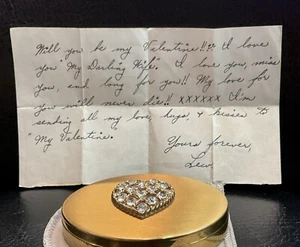 Will you be my Valentine!!? I love
you "My Darling Wife". I love you, miss
you, and long for you!! My love for
you will never die!! xxxxxx I'm
sending all my love, hugs, & kisses to
"My Valentine."
Yours forever,
Lew